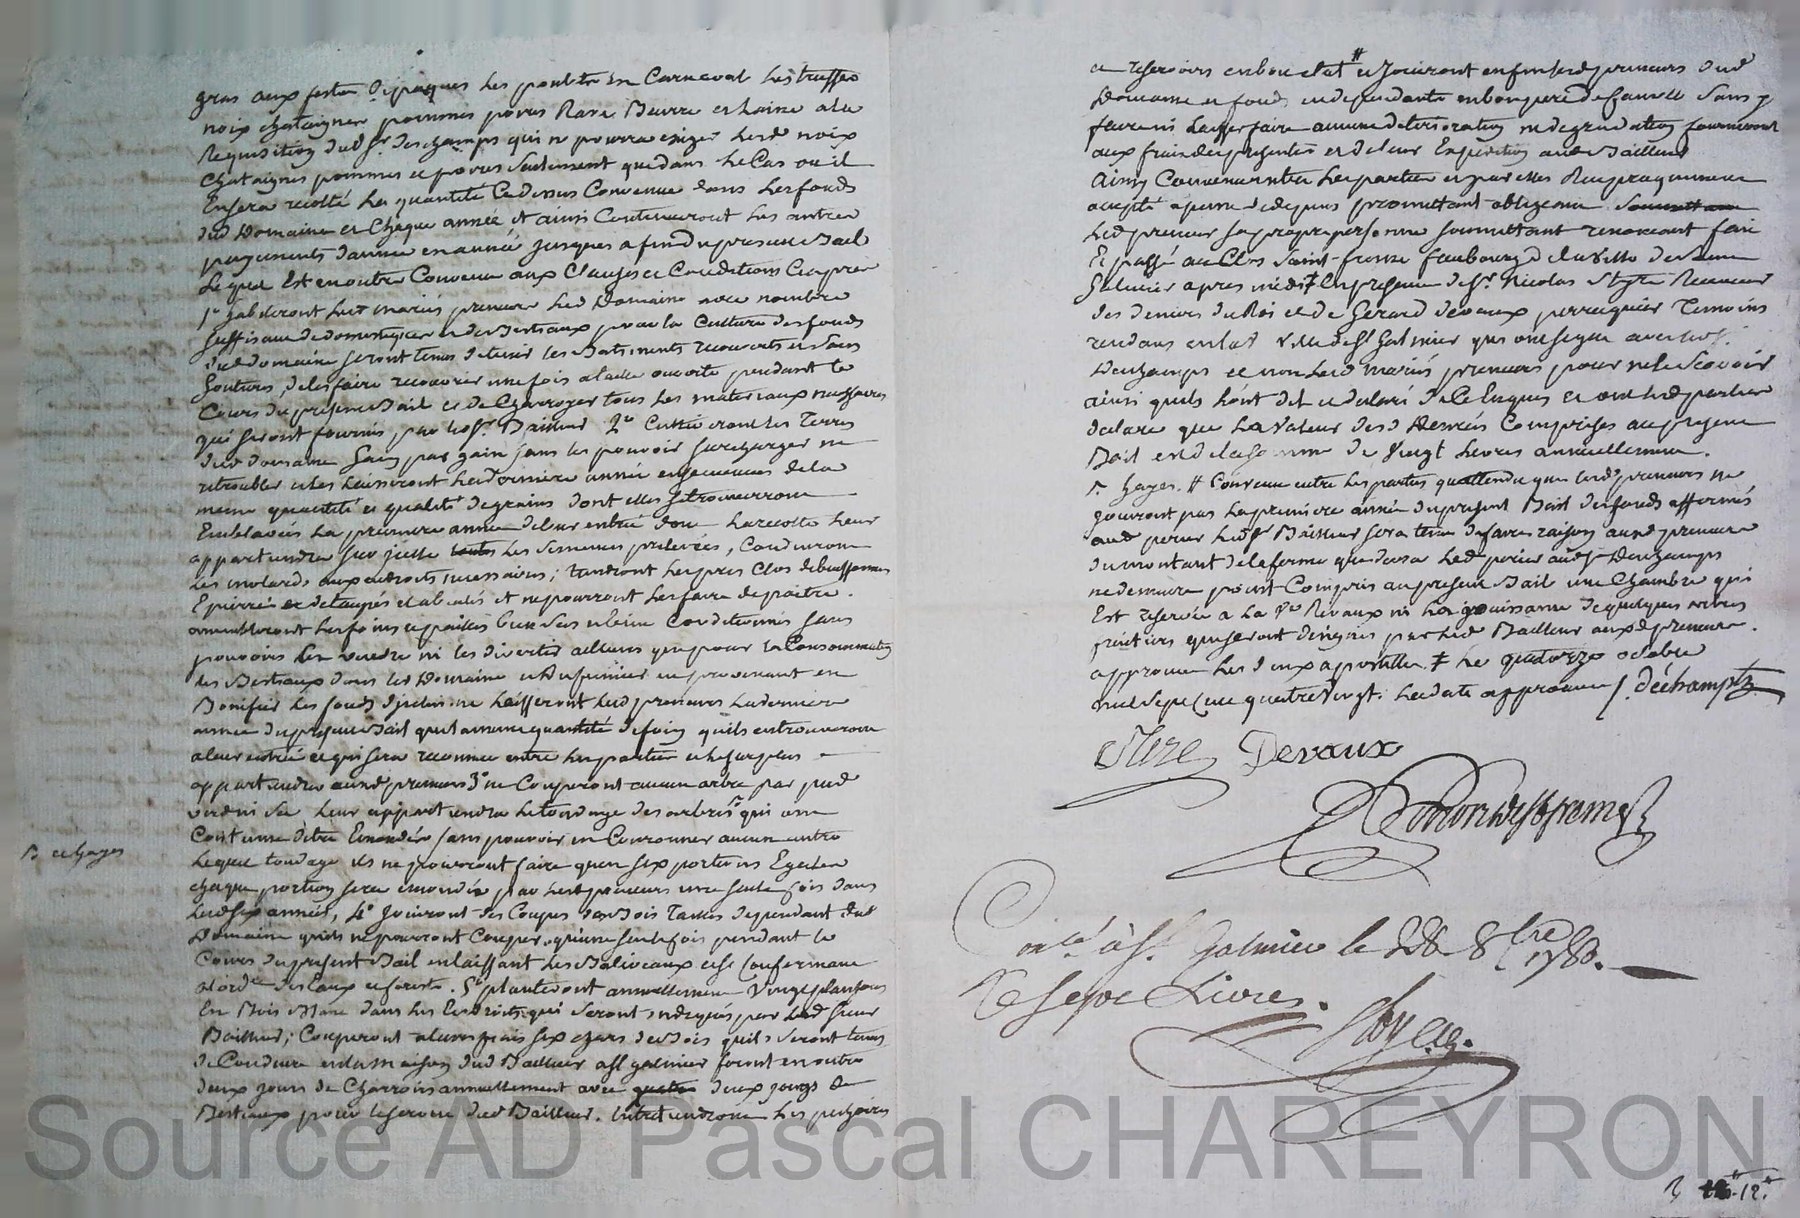 gras aux festes de paques les poulets en Carnaval les truffes
noix chataignes pommes poires Rave Beurre et laine a la
Requisition dud Sr. Deschamps qui ne pourra exiger lesd noix
Chataignes pommes et poires seulement que dans le Cas ou il
En sera recolté la quantité Cy dessus Convenue dans les fonds
dud Domaine et Chaque année et ainsi Continueront les autres
payements d'année en année jusques a fin du present Bail
Lequel Est en outre Convenu aux Clauses et Conditions Cy apres
1° habiteront lesd mariés preneurs led Domaine avec nombre
suffisant de domestiques et de Bestiaux pour la Culture des fonds
dud domaine seront tenus detenir les Batiments recouverts et sans
Goutieres, de les faire recouvrir une fois a taille ouverte pendant le
Cours du present Bail et de Charroyer tous les materiaux necessaires
qui seront fournis par led Sr. Bailleur 2° Cultiveront les Terres
dud domaine sans pouvoir surcharger ni
retroubler et les laisseront led derniere année ensemencés de la
meme quantité et qualité de grains dont elles se trouveront
Emblavées la premiere année de leur entrée dont la recolte leur
appartiendra les semences prelevées, Conduiront
les molards aux endroits necessaires; tiendront les prés Clos debuissonnés
Epierrés et detaupés et ne pourront les faire depaitre.
ameubleront les foins et pailles bien secs et bien conditionnés sans
pouvoir les vendre ni les divertir ailleurs que pour la Consommation
des Bestiaux dans led Domaine et du fumier en provenant en
Bonifier les fonds d'jcelui ne laisseront lesd preneurs la derniere
année du present Bail que la meme quantité de foin quils en trouveront
a leur entrée et qui sera reconnue entre les parties et le surplus
appartiendra auxd preneurs 3° ne Couperont aucun arbre par pied
verd ni sec leur appartiendra le tondage des arbres qui ont
Coutume d'etre Emondés sans pouvoir en Couronner aucun autre
Lequel tondage ils ne pourront faire qu'en six portions Egales
chaque portion sera emondée par lesd preneurs une seule fois dans
lesd six années, 4° jouiront des Coupes des Bois Taillis dependant dud
Domaine quils ne pourront Couper qu'une seule fois pendant le
Cours du present Bail en laissant les Baliveaux et se Conformant
a l'ordce des Eaux et forests. 5° planteront annuellement vingt plantons
En Bois Blanc dans les Endroits qui seront indiqués par led Sieur
Bailleur; Couperont a leurs frais six chars de Bois quils seront tenus
de Conduire en la maison dud Bailleur a St galmier feront en outre
deux jours de Charrois annuellement avec quatre deux jougs de
Bestiaux pour le service dud Bailleur. Entretiendront les pechoires
et hayes
et reservoirs en bon etat # et Jouiront enfin lesd preneurs dud
Domaine et fonds en dependants en bon pere de famille sans y
faire ni laisser faire aucune deterioration ni degradation fourniront
aux frais des presentes et de leur Expedition aud Bailleur
Ainsy Convenu entre les parties et par elles Reciproquement
accepté a peine de depens promettant obligeant Soumettant
Led preneur sa propre personne soumettant renoncant fait
Et passé au Clos Saint-frome faubourg de la Ville de Saint
Galmier apres midi ‡ En presence de Sr. Nicolas Steyre Receveur
des deniers du Roi et de Gerard Devaux perruquier Temoins
residans en lad Ville de St Galmier qui ont signé avec led Sr.
Deschamps et non lesd mariés preneurs pour ne le scavoir
ainsi quils l'ont dit et declaré de Ce Enquis et ont lesd parties
declaré que la Valeur desd Denrées Comprises au present
Bail est de la somme de Vingt Livres annuellement.
hayes. # Convenu entre les parties qu'attendu que lesd preneurs ne
jouiront pas la premiere année du present Bail des fonds affermés
aud perier led Sr Bailleur sera tenu de faire raison auxd preneurs
du montant de la ferme que devra led perier aud Sr Deschamps
ne demeure point Compris au present Bail une Chambre qui
Est reservée a La Ve Rivaux ni la jouissance de quelques arbres
fruitiers qui seront designés par led Bailleur auxd preneurs.
approuvé les deux apostilles. ‡ Le quatorze octobre
mil sept cent quatre vingt. la date approuvée /. déchampts
Devaux
Conlé. à St. Galmier le 28 8bre 1780.
Re Seize Livres.
Source AD Pascal CHAREYRON